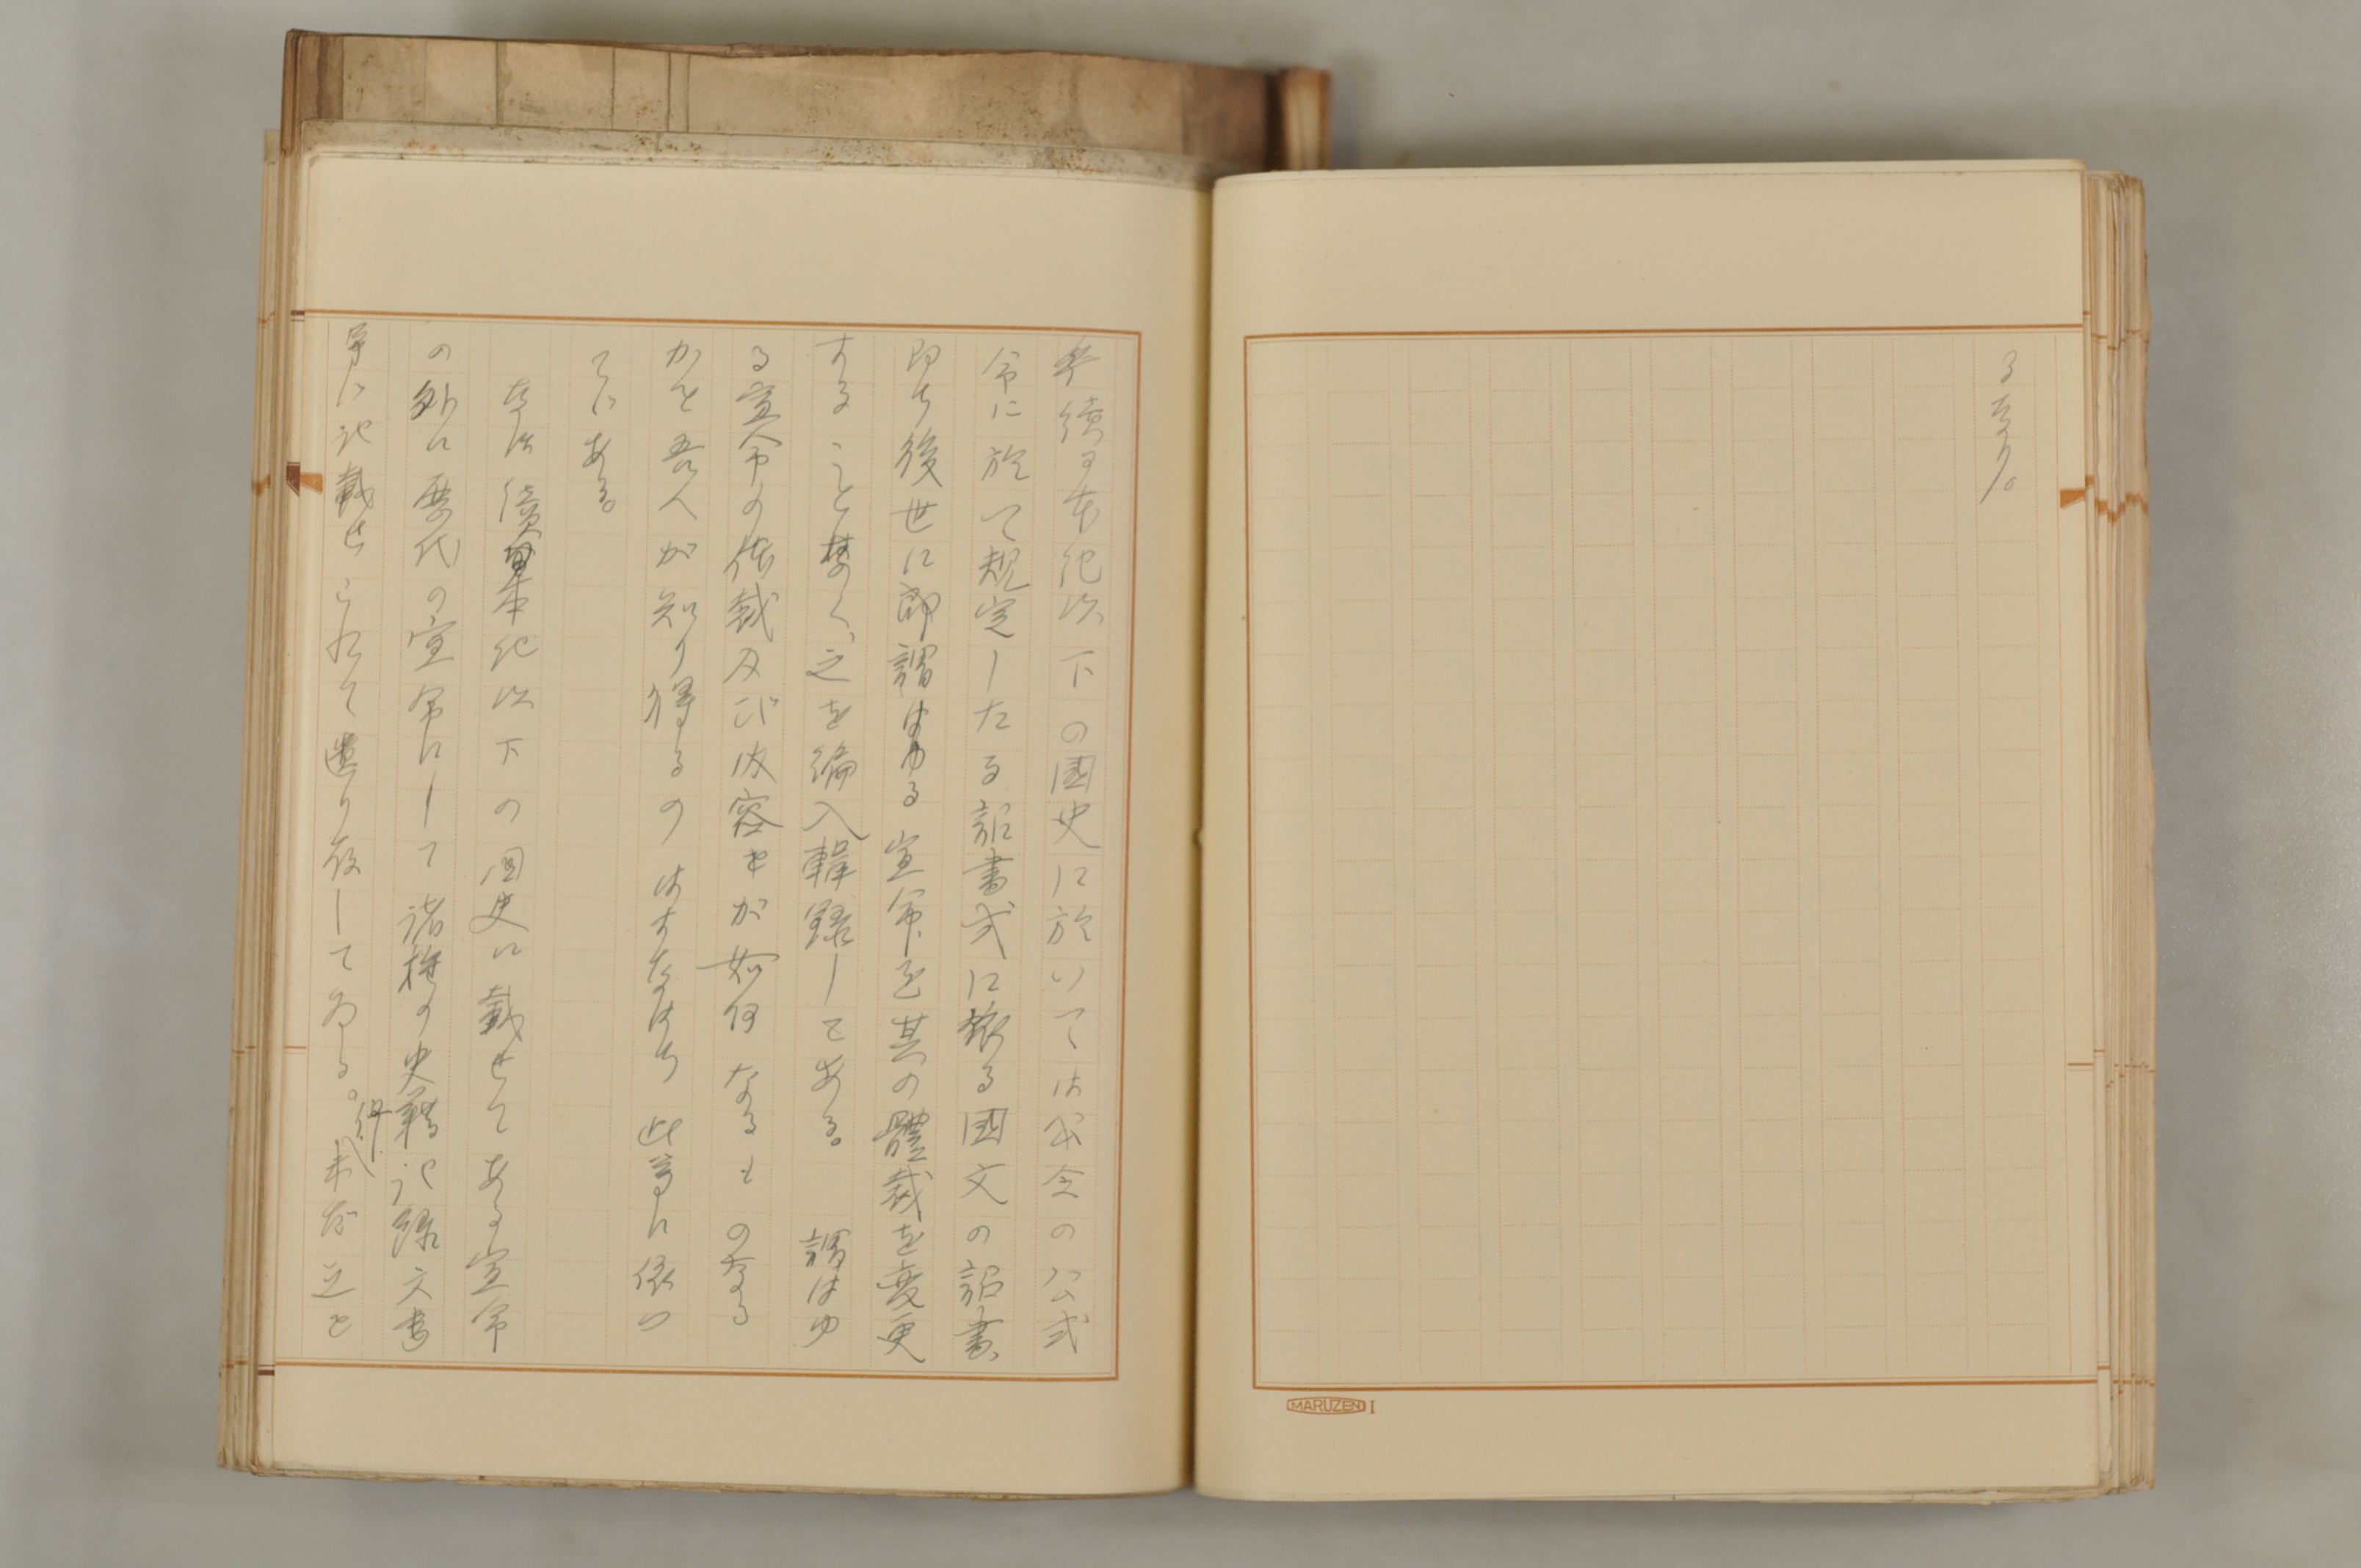 るなり。
MARUZEN I
續日本紀以下の國史に於いては公令の公式
令に於て規定したる詔書式に依る國文の詔書
即ち後世に所謂る宣命を其の體裁を変更
すること無く、之を編入輯錄してある。 謂はゆ
る宣命の体裁及び内容が如何なるものなる
かを吾人が知り得るのはすなはち此等に依つ
てゞある。
なほ續日本紀以下の国史に載せてある宣命
の外に歴代の宣命にして諸種の史籍記録文書
等に記載せられて遺り存してゐる。併し未だ之を